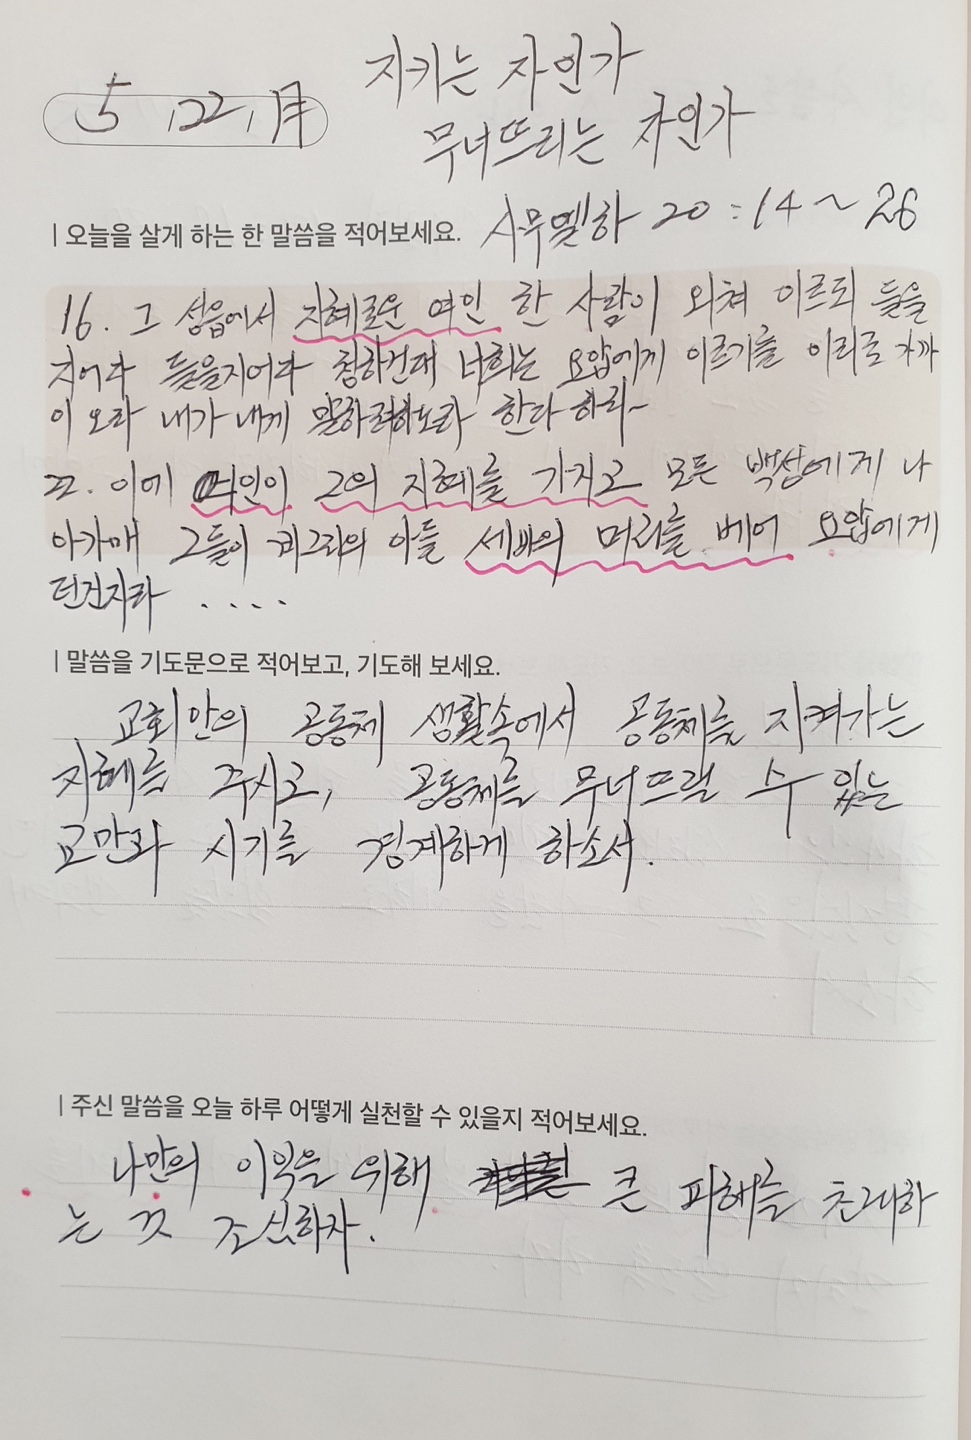 지키는 자인가
5.22.月
무너뜨리는 자인가
| 오늘을 살게 하는 한 말씀을 적어보세요. 사무엘하 20:14~26
16. 그 성읍에서 지혜로운 여인 한 사람이 외쳐 이르되 들을
지어다 들을지어다 청하건대 너희는 요압에게 이르기를 이리로 가까
이 오라 내가 네게 말하려하노라 한다 하라~
22. 이에 여인이 그의 지혜를 가지고 모든 백성에게 나
아가매 그들이 비그리의 아들 세바의 머리를 베어 요압에게
던진지라 ....
| 말씀을 기도문으로 적어보고, 기도해 보세요.
교회안의 공동체 생활속에서 공동체를 지켜가는
지혜를 주시고, 공동체를 무너뜨릴 수 있는
교만과 시기를 경계하게 하소서.
| 주신 말씀을 오늘 하루 어떻게 실천할 수 있을지 적어보세요.
나만의 이익을 위해 큰 피해를 초래하
는 것 조심하자.